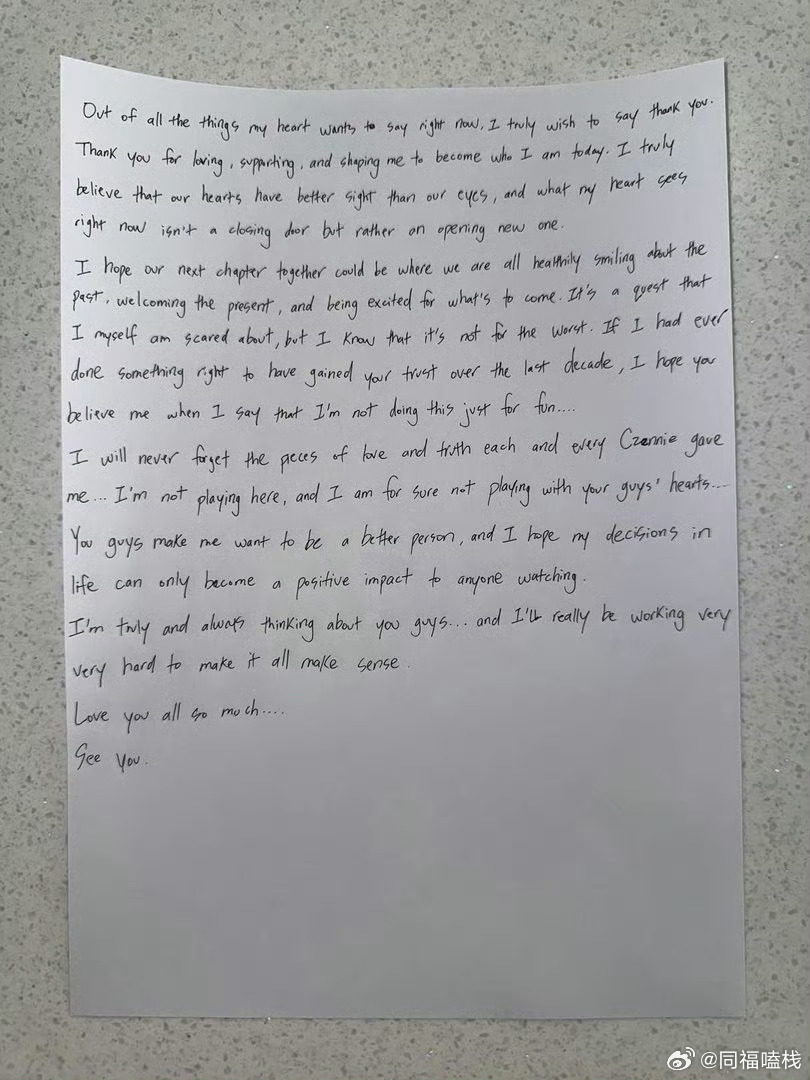 Out of all the things my heart wants to say right now, I truly wish to say thank you.
Thank you for loving, supporting, and shaping me to become who I am today. I truly
believe that our hearts have better sight than our eyes, and what my heart sees
right now isn't a closing door but rather an opening new one.
I hope our next chapter together could be where we are all healthily smiling about the
past, welcoming the present, and being excited for what's to come. It's a quest that
I myself am scared about, but I know that it's not for the worst. If I had ever
done something right to have gained your trust over the last decade, I hope you
believe me when I say that I'm not doing this just for fun....
I will never forget the pieces of love and truth each and every Czennie gave
me... I'm not playing here, and I am for sure not playing with your guys' hearts...
You guys make me want to be a better person, and I hope my decisions in
life can only become a positive impact to anyone watching.
I'm truly and always thinking about you guys... and I'll really be working very
very hard to make it all make sense.
Love you all so much....
See you.
@同福嗑栈